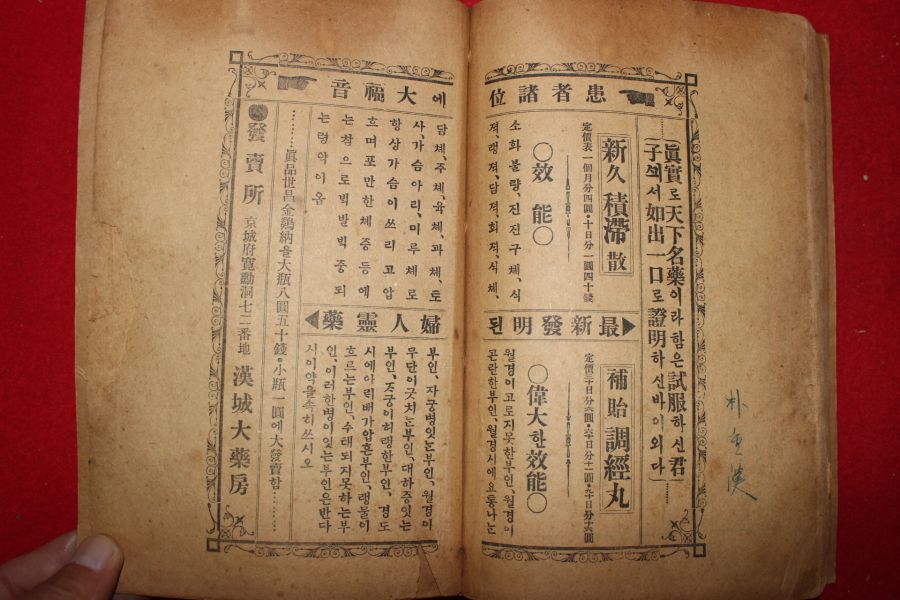 眞實로天下名藥이라함은試服하신君
子께서如出一口로證明하신바이외다
患者諸位에大福音
新久積滯散
定價表一個月分四圓·十日分一圓四十錢
○效能○
소화불량、진진구체、식
적、랭적담적、회적、식체、
담체、주체、육체、과체、토
사、가슴아리、미루체로
항상가슴이쓰리고압
흐며포만한체증등에
는참으로빅발빅중되
는령약이옴
最新發明된婦人靈藥
補胎調經丸
定價三十日分六圓·六十日分十二圓·九十日分十六圓
○偉大한效能○
월경이고로지못한부인、월경이
곤란한부인、월경시에요통나는
부인、자궁병잇는부인、월경이
무단이긋치는부인、대하증잇는
부인、자궁이허랭한부인、경도
시에아리배가압흔부인、랭물이
흐르는부인、수태되지못하는부
인、이러한병이잇는부인은반다
시이약을속히쓰시오
眞品世昌金鷄納을大瓶八圓五十錢·小瓶一圓에大發賣함
發賣所 京城府寬勳洞七二番地 漢城大藥房
朴